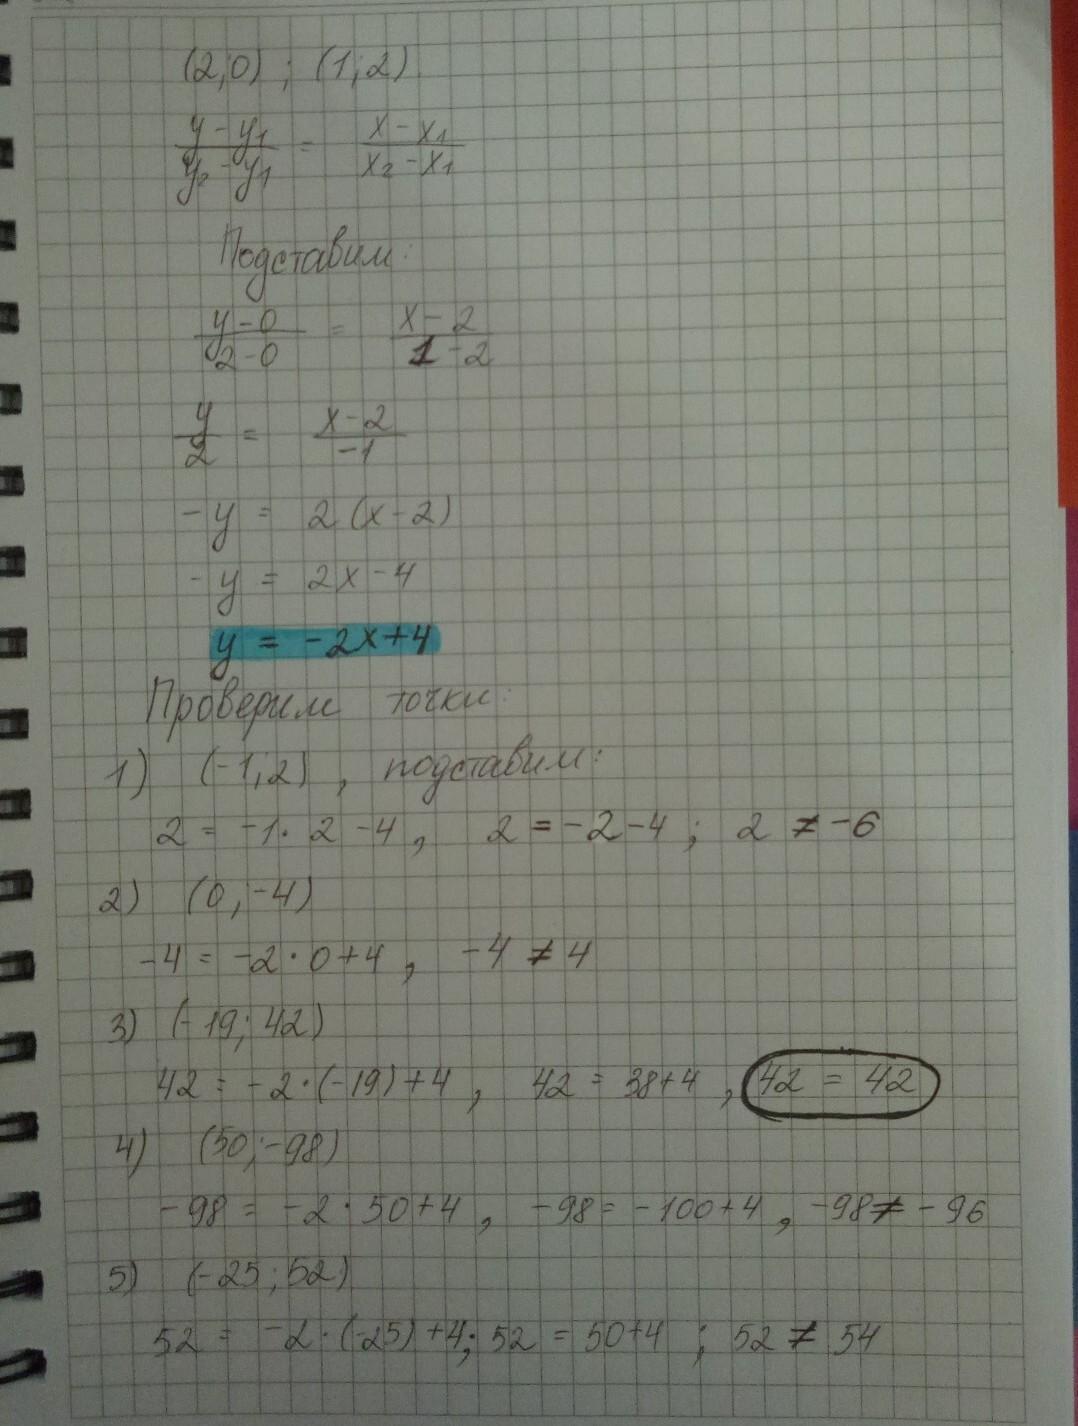 (2;0) ; (1;2)
y - y₁ / y₂ - y₁ = x - x₁ / x₂ - x₁
Подставим:
y - 0 / 2 - 0 = x - 2 / 1 - 2
y / 2 = x - 2 / -1
- y = 2 (x - 2)
- y = 2x - 4
y = -2x + 4
Проверим точки:
1) (-1;2) , подставим:
2 = -1 · 2 - 4 , 2 = -2 - 4 ; 2 ≠ -6
2) (0;-4)
-4 = -2 · 0 + 4 , -4 ≠ 4
3) (-19; 42)
42 = -2 · (-19) + 4 , 42 = 38 + 4 , 42 = 42
4) (50;-98)
-98 = -2 · 50 + 4 , -98 = -100 + 4 , -98 ≠ -96
5) (-25 ; 52)
52 = -2 · (-25) + 4; 52 = 50 + 4 ; 52 ≠ 54